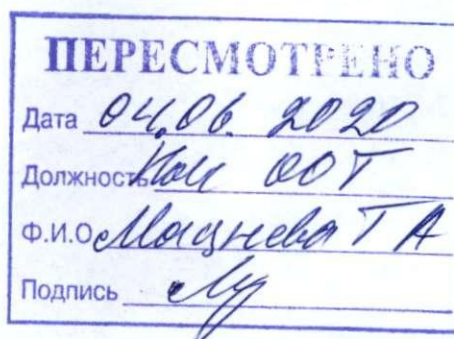 ПЕРЕСМОТРЕНО
Дата 04.06. 2020
Должность ООТ
Ф.И.О Мацнева Т А
Подпись